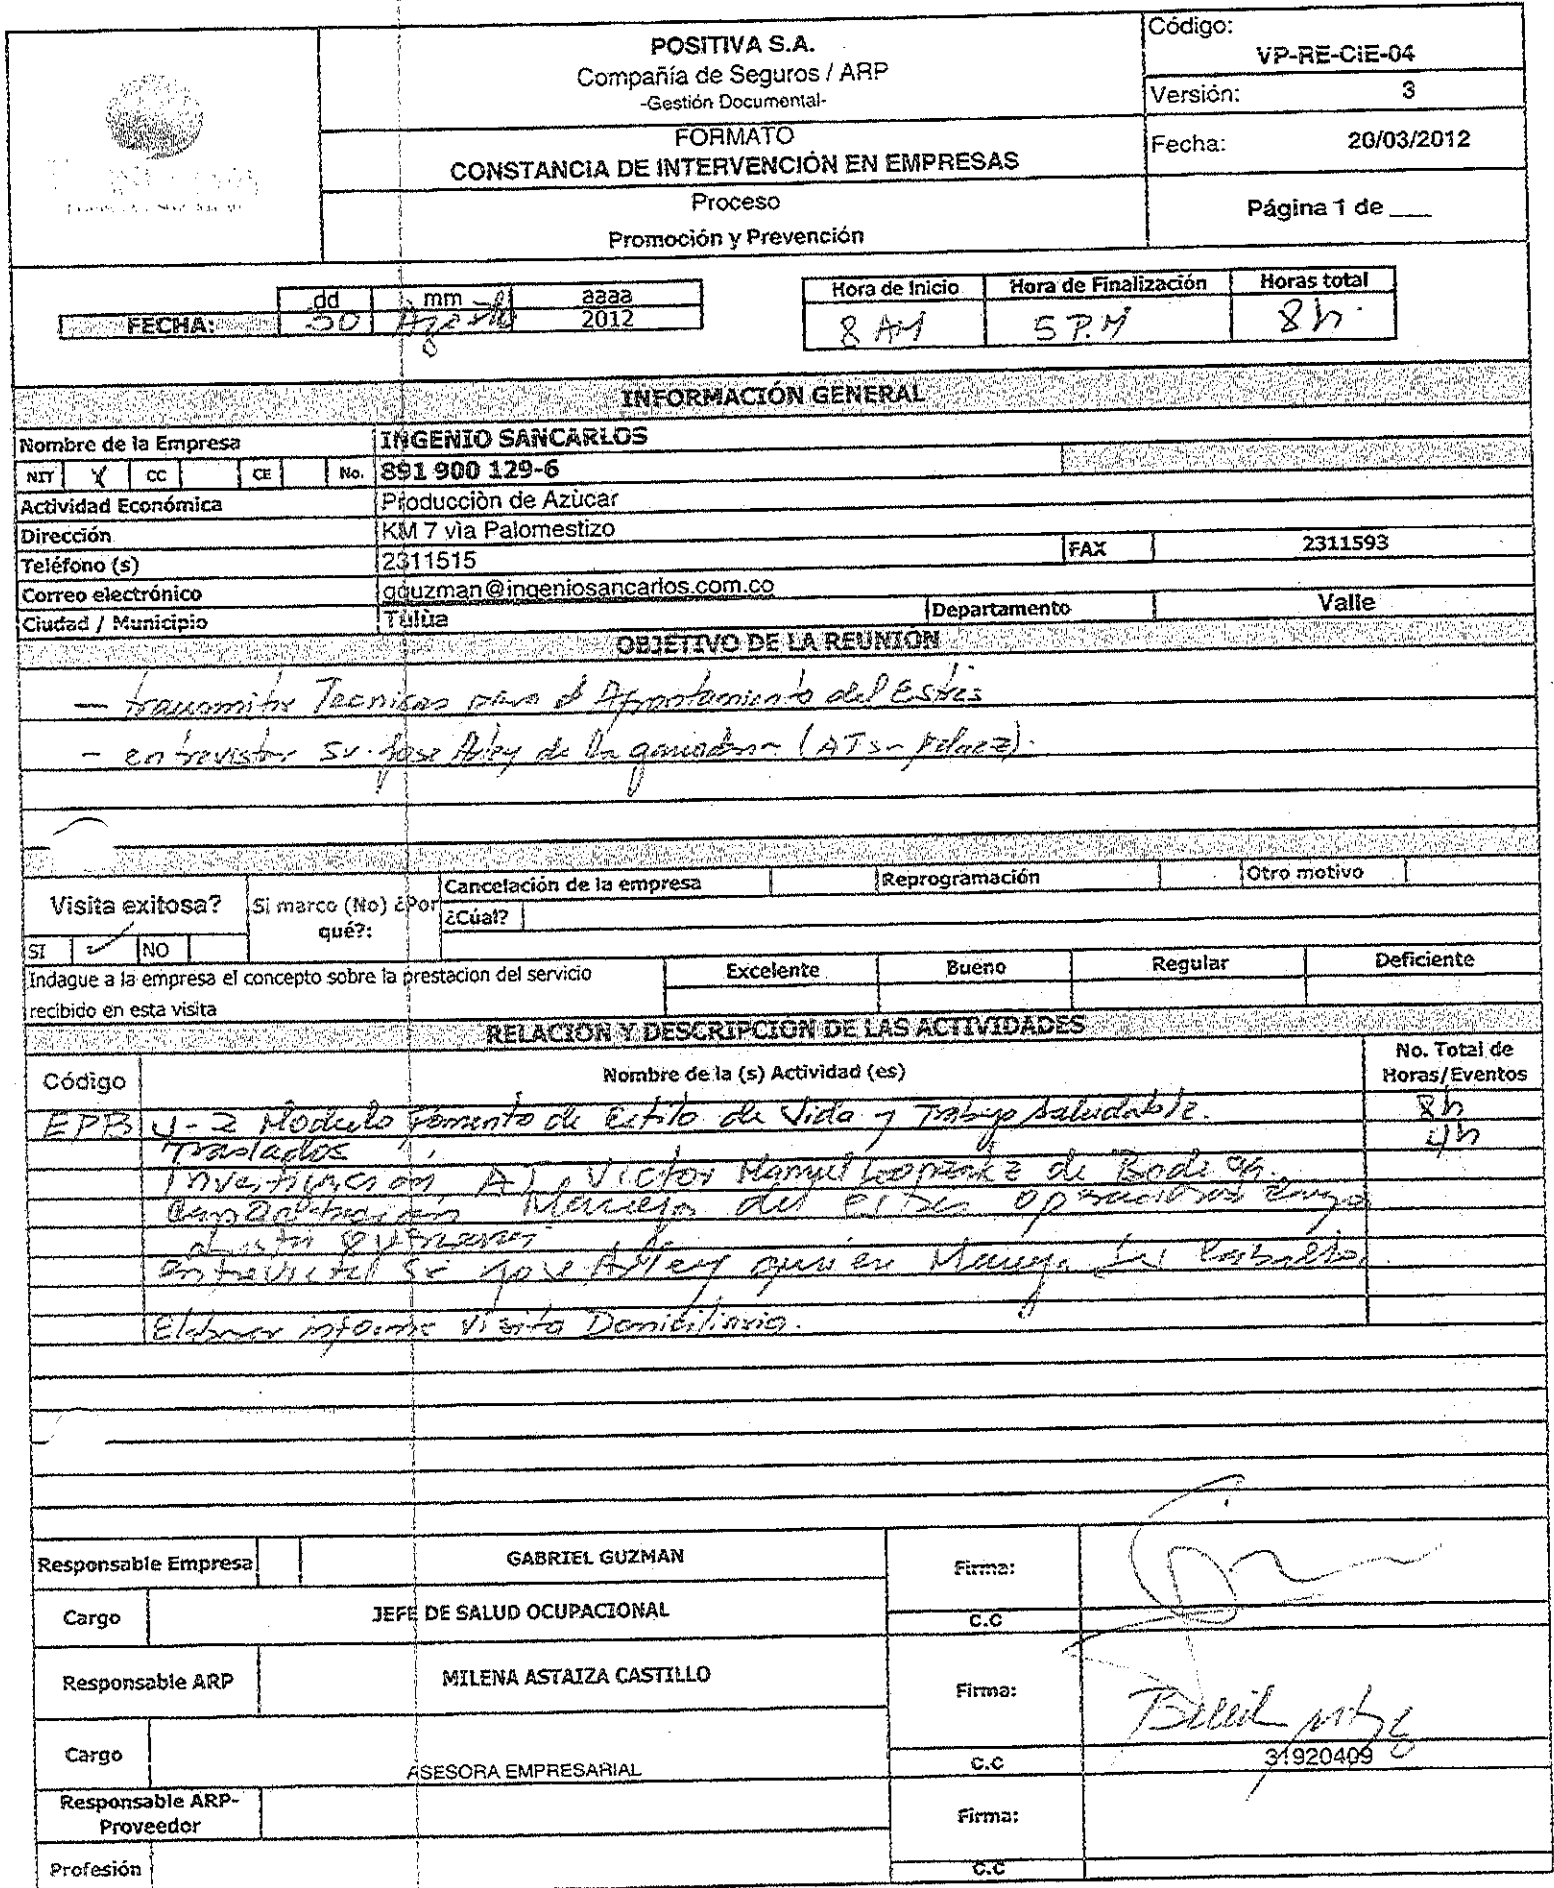 POSITIVA S.A.
Compañía de Seguros / ARP
-Gestión Documental-
FORMATO
CONSTANCIA DE INTERVENCIÓN EN EMPRESAS
Proceso
Promoción y Prevención
Código:
VP-RE-CIE-04
Versión: 3
Fecha: 20/03/2012
Página 1 de ___
dd mm aaaa
FECHA: 30 Agosto 2012
Hora de Inicio Hora de Finalización Horas total
8 AM 5 P.M 8h.
INFORMACIÓN GENERAL
Nombre de la Empresa INGENIO SANCARLOS
NIT X CC CE No. 891 900 129-6
Actividad Económica Producciòn de Azùcar
Dirección KM 7 vìa Palomestizo
Teléfono (s) 2311515 FAX 2311593
Correo electrónico gguzman@ingeniosancarlos.com.co
Ciudad / Municipio Tulùa Departamento Valle
OBJETIVO DE LA REUNIÓN
- transmitir Tecnicas para el Afrontamiento del Estrés
- entrevistar Sr. Jose Arley de la ganadera (ATs-
Visita exitosa? Si marco (No) ¿Por qué?: Cancelación de la empresa Reprogramación Otro motivo
¿Cúal?
SI ✓ NO
Indague a la empresa el concepto sobre la prestacion del servicio
recibido en esta visita
Excelente Bueno Regular Deficiente
RELACIÓN Y DESCRIPCIÓN DE LAS ACTIVIDADES
Código Nombre de la (s) Actividad (es) No. Total de Horas/Eventos
EPB 4-2 Modulo Fomento de Estilo de Vida y Trabajo Saludable. 8h
Traslados 4h
Investigación AT. Victor Manuel de Bodega.
Manejo del estres
Entrevista Sr Jose Arley quien Maneja los Caballos
Elaborar informe Visita Domiciliaria.
Responsable Empresa GABRIEL GUZMAN Firma:
Cargo JEFE DE SALUD OCUPACIONAL C.C
Responsable ARP MILENA ASTAIZA CASTILLO Firma:
Cargo ASESORA EMPRESARIAL C.C 31920409
Responsable ARP-
Proveedor Firma:
Profesión C.C